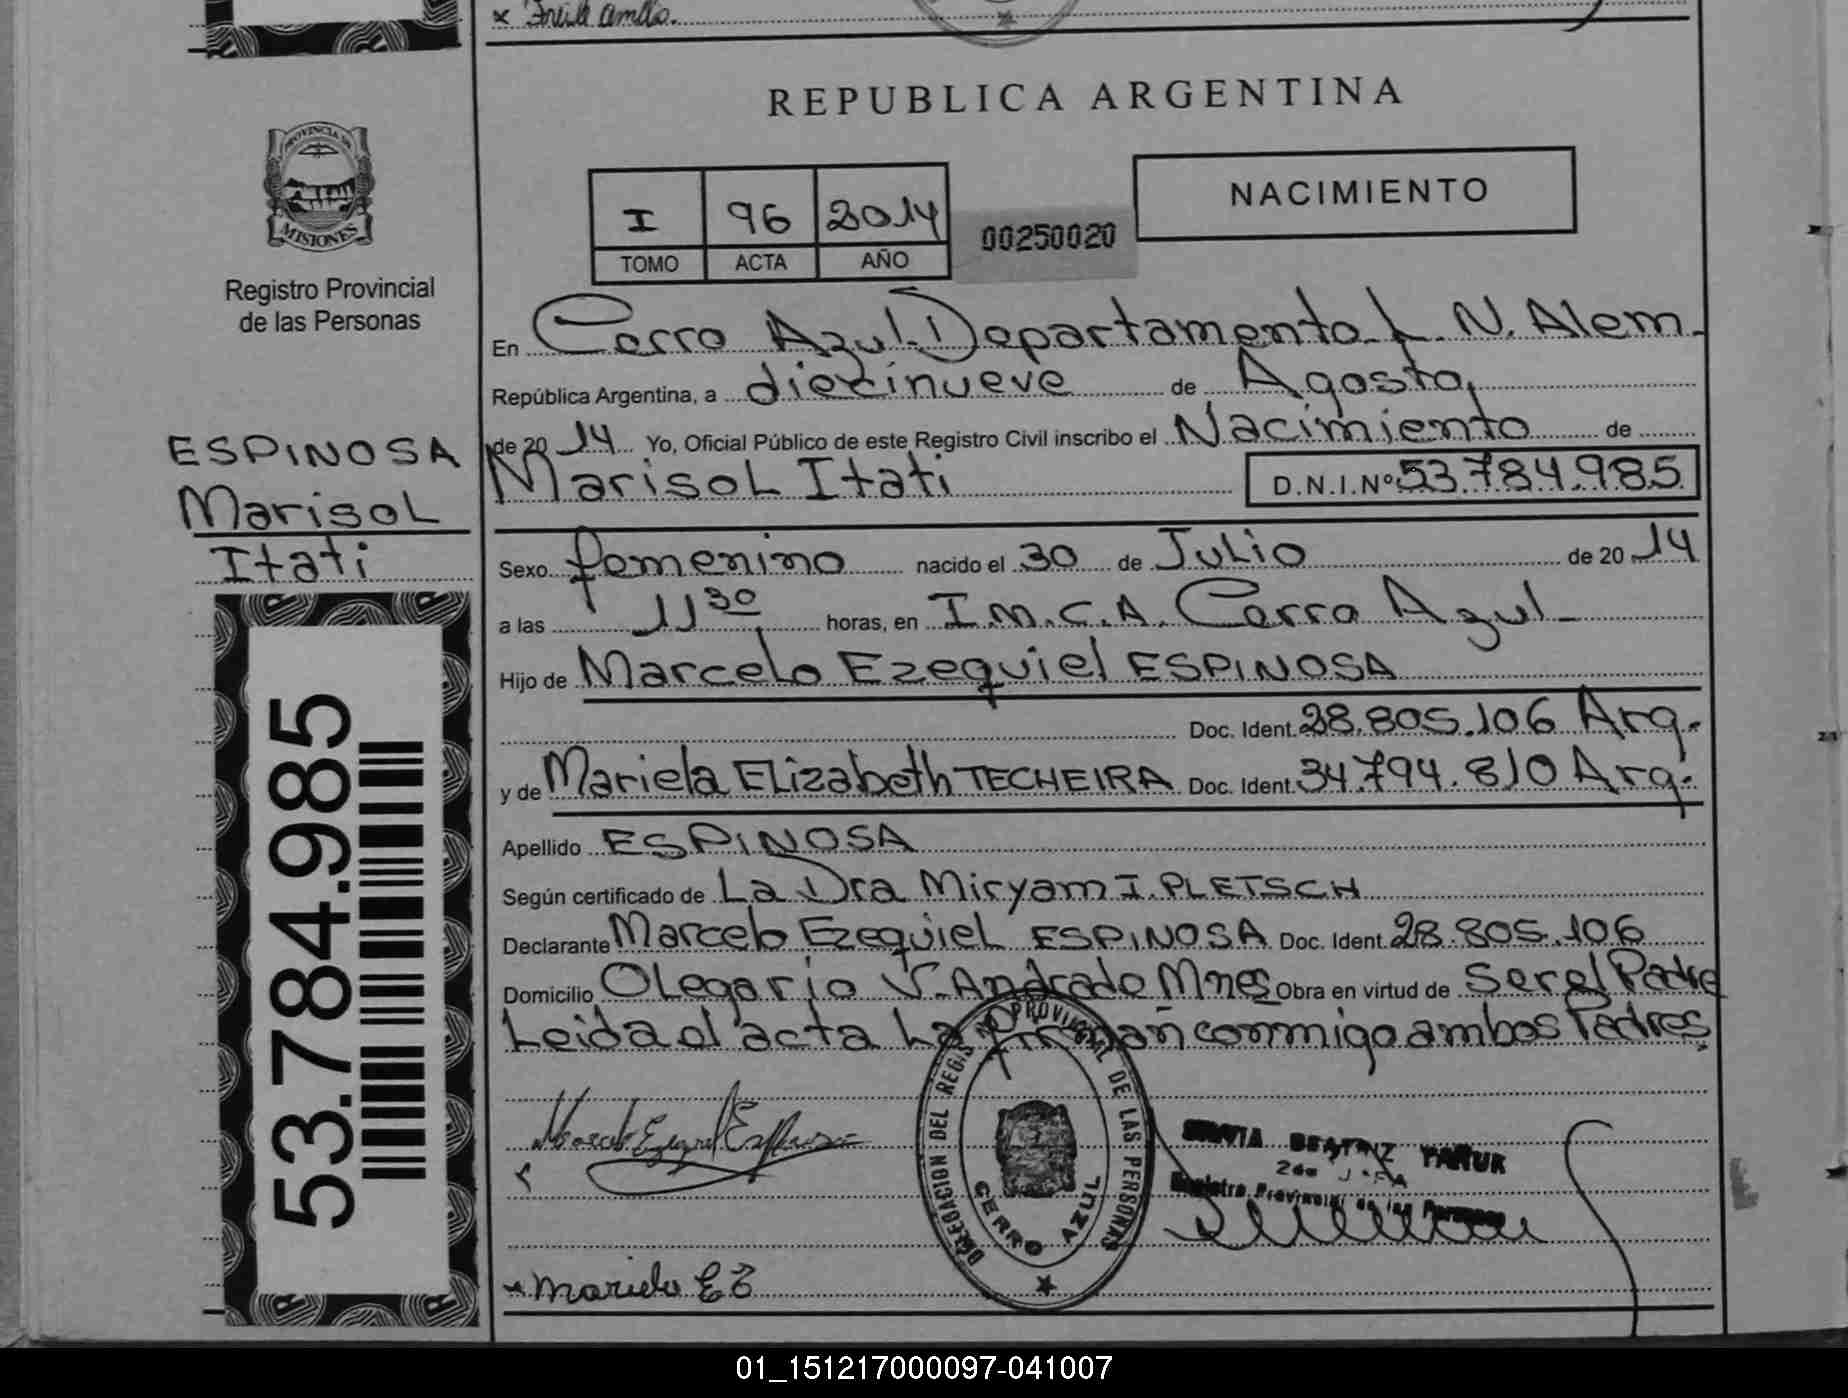 PROVINCIA DE
MISIONES
Registro Provincial
de las Personas
ESPINOSA
Marisol
Itati
53.784.985
REPUBLICA ARGENTINA
I 96 2014
TOMO ACTA AÑO
00250020
NACIMIENTO
En Cerro Azul. Departamento L. N. Alem.
República Argentina, a diecinueve de Agosto,
de 2014 Yo, Oficial Público de este Registro Civil inscribo el Nacimiento de
Marisol Itati D.N.I.Nº 53.784.985
Sexo femenino nacido el 30 de Julio de 2014
a las 11 30 horas, en I.M.C.A. Cerro Azul
Hijo de Marcelo Ezequiel ESPINOSA
Doc. Ident. 28.805.106 Arg.
y de Mariela Elizabeth TECHEIRA Doc. Ident. 34.794.810 Arg.
Apellido ESPINOSA
Según certificado de La Dra Miryam I. PLETSCH
Declarante Marcelo Ezequiel ESPINOSA Doc. Ident. 28.805.106
Domicilio Olegario V. Andrade Mnes Obra en virtud de Ser el Padre
Leida el acta La firman conmigo ambos Padres.
DELEGACION DEL REGISTRO PROVINCIAL DE LAS PERSONAS
CERRO AZUL
Marcelo Ezequiel Espinosa
BEATRIZ
Registro Provincial de las Personas
Mariela E
01_151217000097-041007